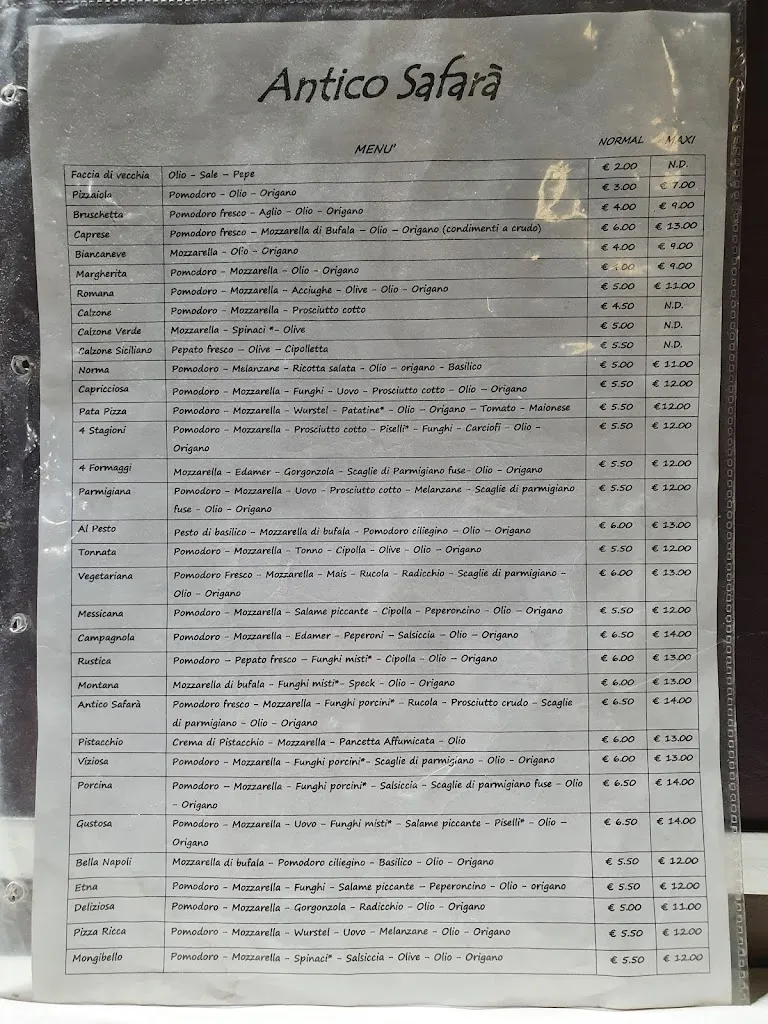 Antico Safarà
MENU' NORMAL MAXI
Faccia di vecchia Olio - Sale – Pepe € 2.00 N.D.
Pizzaiola Pomodoro - Olio - Origano € 3.00 € 7.00
Bruschetta Pomodoro fresco - Aglio - Olio - Origano € 4.00 € 9.00
Caprese Pomodoro fresco – Mozzarella di Bufala – Olio – Origano (condimenti a crudo) € 6.00 € 13.00
Biancaneve Mozzarella - Olio - Origano € 4.00 € 9.00
Margherita Pomodoro - Mozzarella - Olio - Origano € .00 € 9.00
Romana Pomodoro - Mozzarella - Acciughe - Olive - Olio - Origano € 5.00 € 11.00
Calzone Pomodoro - Mozzarella - Prosciutto cotto € 4.50 N.D.
Calzone Verde Mozzarella - Spinaci *- Olive € 5.00 N.D.
Calzone Siciliano Pepato fresco – Olive – Cipolletta € 5.50 N.D.
Norma Pomodoro - Melanzane - Ricotta salata - Olio – origano - Basilico € 5.00 € 11.00
Capricciosa Pomodoro - Mozzarella - Funghi - Uovo - Prosciutto cotto - Olio - Origano € 5.50 € 12.00
Pata Pizza Pomodoro - Mozzarella - Wurstel - Patatine* - Olio - Origano - Tomato - Maionese € 5.50 €12.00
4 Stagioni Pomodoro - Mozzarella - Prosciutto cotto - Piselli* - Funghi - Carciofi - Olio – € 5.50 € 12.00
Origano
4 Formaggi Mozzarella - Edamer - Gorgonzola - Scaglie di Parmigiano fuse- Olio - Origano € 5.50 € 12.00
Parmigiana Pomodoro - Mozzarella - Uovo - Prosciutto cotto - Melanzane - Scaglie di parmigiano € 5.50 € 12.00
fuse - Olio - Origano
Al Pesto Pesto di basilico - Mozzarella di bufala - Pomodoro ciliegino – Olio – Origano € 6.00 € 13.00
Tonnata Pomodoro - Mozzarella - Tonno - Cipolla - Olive - Olio - Origano € 5.50 € 12.00
Vegetariana Pomodoro Fresco - Mozzarella - Mais - Rucola - Radicchio - Scaglie di parmigiano – € 6.00 € 13.00
Olio - Origano
Messicana Pomodoro - Mozzarella - Salame piccante - Cipolla - Peperoncino - Olio - Origano € 5.50 € 12.00
Campagnola Pomodoro - Mozzarella - Edamer - Peperoni - Salsiccia - Olio - Origano € 6.50 € 14.00
Rustica Pomodoro – Pepato fresco – Funghi misti* - Cipolla - Olio – Origano € 6.00 € 13.00
Montana Mozzarella di bufala - Funghi misti*- Speck - Olio - Origano € 6.00 € 13.00
Antico Safarà Pomodoro fresco - Mozzarella - Funghi porcini* - Rucola - Prosciutto crudo - Scaglie € 6.50 € 14.00
di parmigiano - Olio - Origano
Pistacchio Crema di Pistacchio - Mozzarella - Pancetta Affumicata - Olio € 6.00 € 13.00
Viziosa Pomodoro - Mozzarella - Funghi porcini*- Scaglie di parmigiano - Olio - Origano € 6.00 € 13.00
Porcina Pomodoro – Mozzarella - Funghi porcini* - Salsiccia - Scaglie di parmigiano fuse - Olio € 6.50 € 14.00
- Origano
Gustosa Pomodoro - Mozzarella - Uovo - Funghi misti* - Salame piccante - Piselli* - Olio – € 6.50 € 14.00
Origano
Bella Napoli Mozzarella di bufala - Pomodoro ciliegino - Basilico - Olio - Origano € 5.50 € 12.00
Etna Pomodoro - Mozzarella - Funghi - Salame piccante – Peperoncino - Olio - origano € 5.50 € 12.00
Deliziosa Pomodoro - Mozzarella - Gorgonzola - Radicchio - Olio - Origano € 5.00 € 11.00
Pizza Ricca Pomodoro - Mozzarella - Wurstel - Uovo - Melanzane - Olio - Origano € 5.50 € 12.00
Mongibello Pomodoro - Mozzarella - Spinaci* - Salsiccia - Olive - Olio - Origano € 5.50 € 12.00